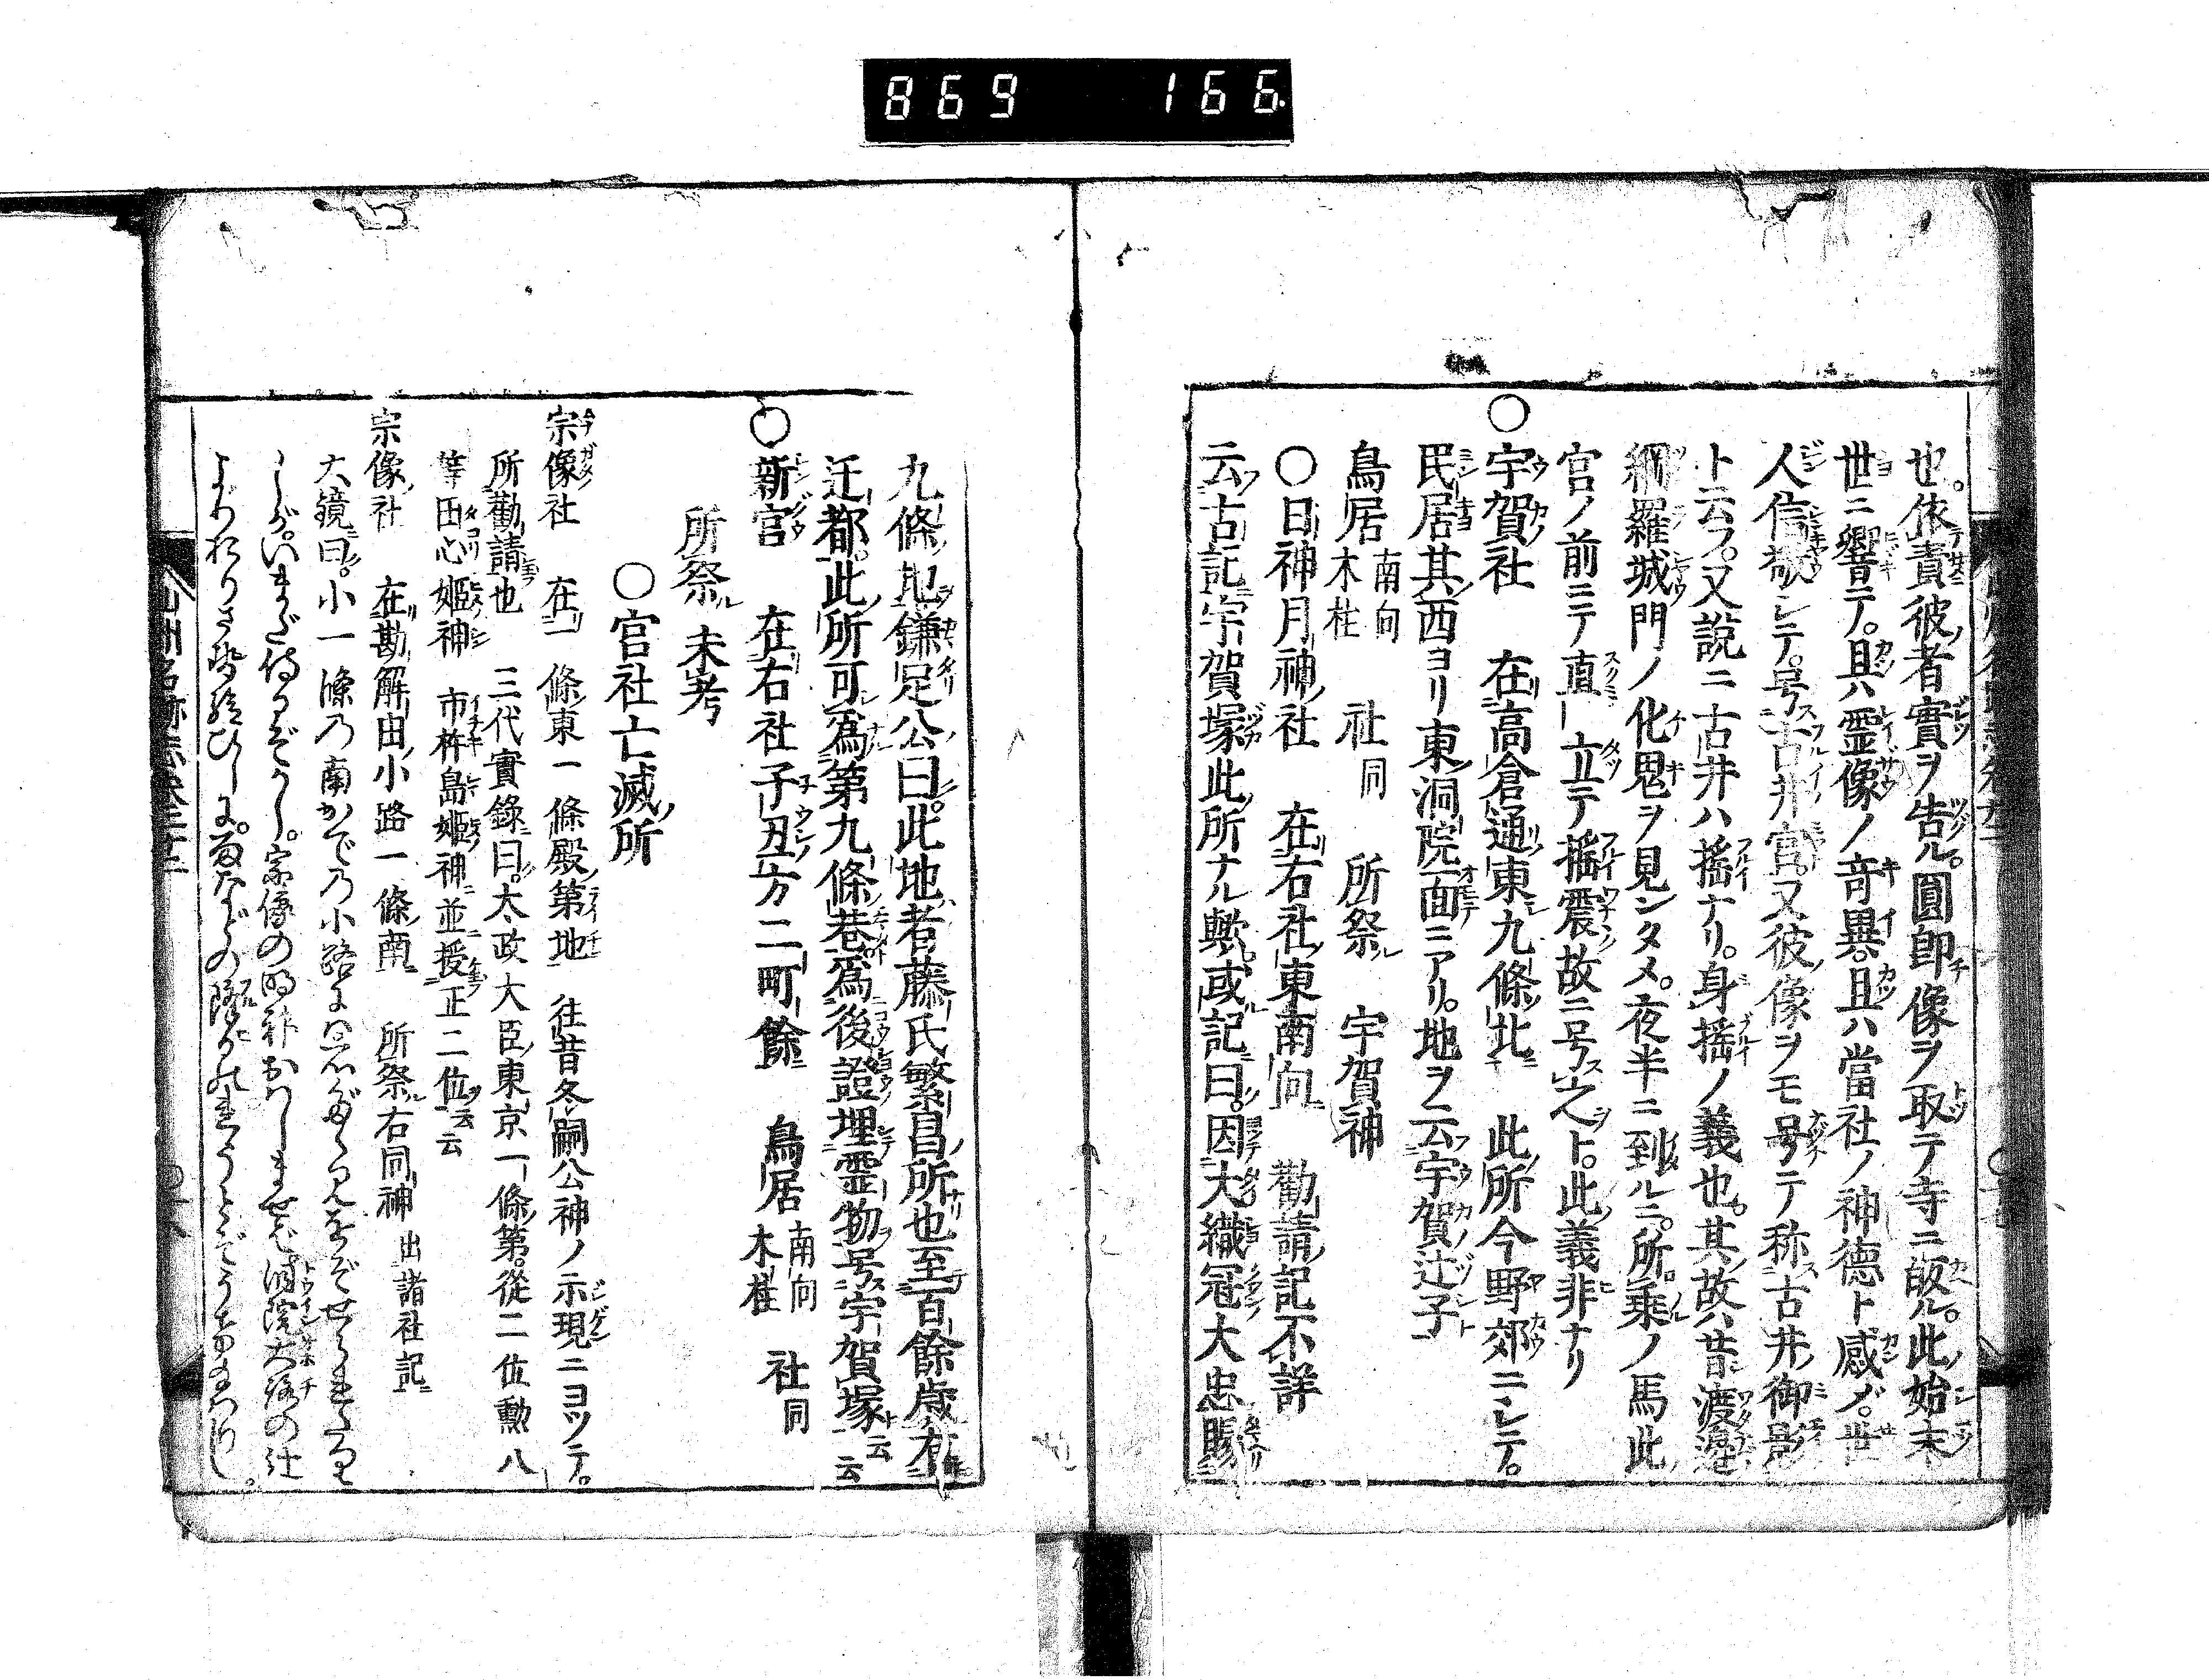 869 166
也。依責彼者實ヲ告ル。圓即像ヲ取テ寺ニ皈ル。此始末
世ニ響テ。且ハ霊像ノ奇異。且ハ當社ノ神德ト感ジ。世
人信敬シテ。号古井宮。又彼像ヲモ号テ称古井御影
ト云フ。又説ニ古井ハ搖ナリ。身搖ノ義也。其故ハ昔渡邊
綱羅城門ノ化鬼ヲ見ンタメ。夜半ニ到ルニ。所乗ノ馬此
宮ノ前ニテ直ニ立テ搖震故ニ号之ト。此義非ナリ
○宇賀社 在高倉通東九條北 此所今野郊ニシテ。
民居其西ヨリ東洞院面ニアリ。地ヲ云宇賀辻子
鳥居 南向 木柱 社 同 所祭 宇賀神
○日神月神社 在右社東南向 勸請記不詳
云古記宇賀塚此所ナル歟。或記曰。因大織冠大忠賜
九條地鎌足公曰。此地者藤氏繁昌所也至百餘歳有
迁都。此所可爲第九條巷爲後證埋霊物号宇賀塚云云
○新宮 在右社子丑方二町餘 鳥居 南向 木柱 社 同
所祭 未考
○宮社亡滅所
宗像社 在一條東一條殿第地 往昔冬嗣公神ノ示現ニヨツテ。
所勸請也 三代實錄曰。太政大臣東京一條第。從二位勲八
等田心姫神 市杵島姫神並授正二位云云
宗像社 在勘解由小路一條南 所祭右同神 出諸社記
大鏡曰。小一條乃南かでの小路にはいしだゝみをぞせられたりき
しが。いまだ侍るぞかし。宗像の明神おはしませば洞院大路の辻
よりおりさせ給ひしに。雨などの降る
山州名跡志卷之二十